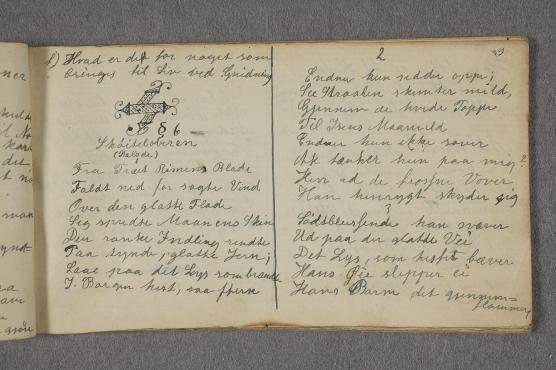 f) Hvad er det for noget som
bringes til Liv ved Gnidning
§ 6
Skøiteløberen
(Balade.)
Fra Træet Rimens Blade
Faldt ned for sagte Vind
Over den glatte Flade
Sig spredte Maanens Skin
Den ranke Yndling rendte
Paa tynde, glatte Jern;
Laae paa det Lys som brændte
I Borgen hist, saa fjern
2
Endnu hun sidder oppe;
See Straalen skinter mild,
Gjennem de hvide Toppe
Til Isens Maaneild
Endnu hun ikke sover
Ak tænker hun paa mig?
Hen ad de frosne Vover
Han henrykt skyder sig
3
Lødsbeusfende han svæver
Ud paa den glatte Vei
Det Lys, som hisset bæver
Hans Øie slipper ei
Hans Barm det gjennem-
flammer,